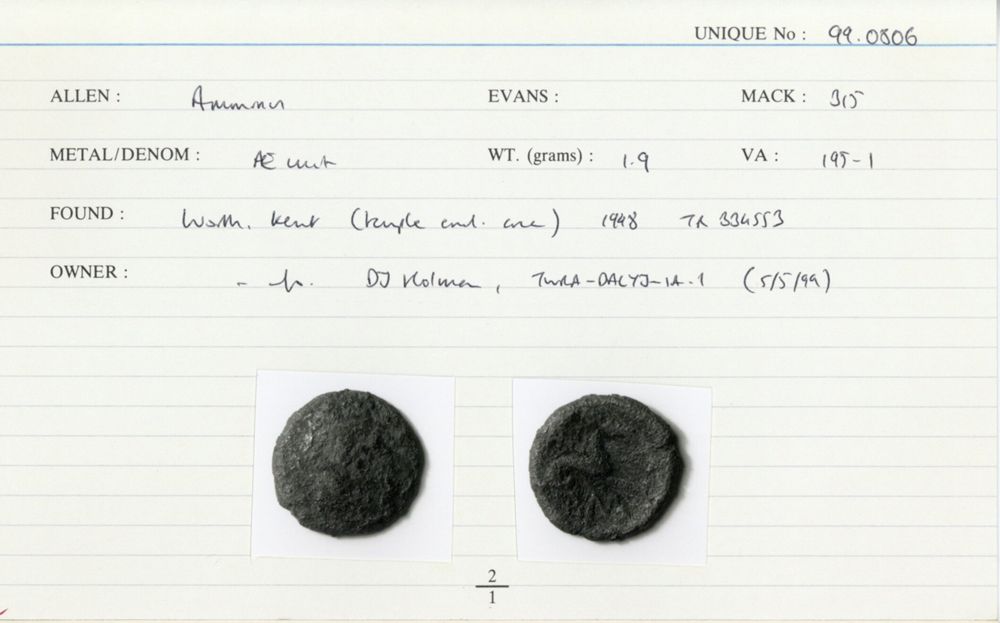 UNIQUE No : 99.0806
ALLEN : Amminus EVANS : MACK : 315
METAL/DENOM : AE unit WT. (grams) : 1.9 VA : 195-1
FOUND : Worth, Kent (temple area) TR 334553
OWNER : - DJ Holman, (5/5/99)
2
1